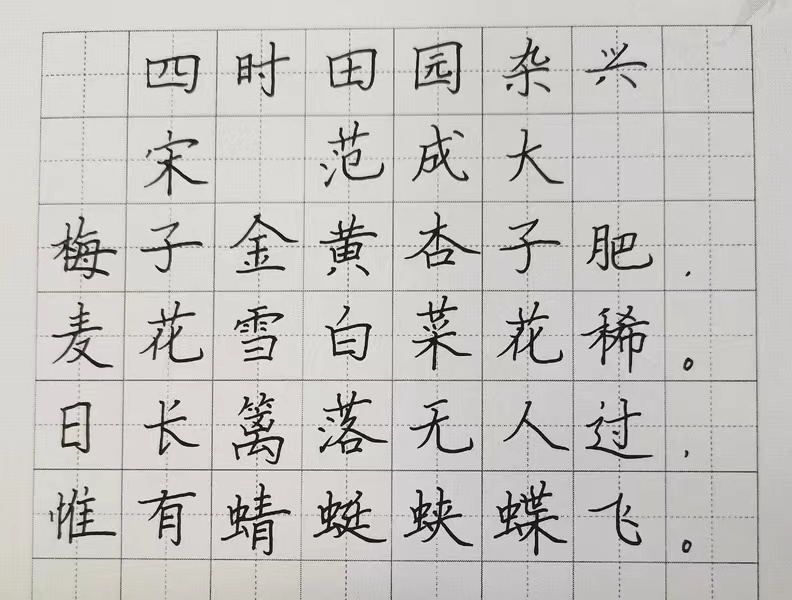 四时田园杂兴
宋 范成大
梅子金黄杏子肥，
麦花雪白菜花稀。
日长篱落无人过，
惟有蜻蜓蛱蝶飞。